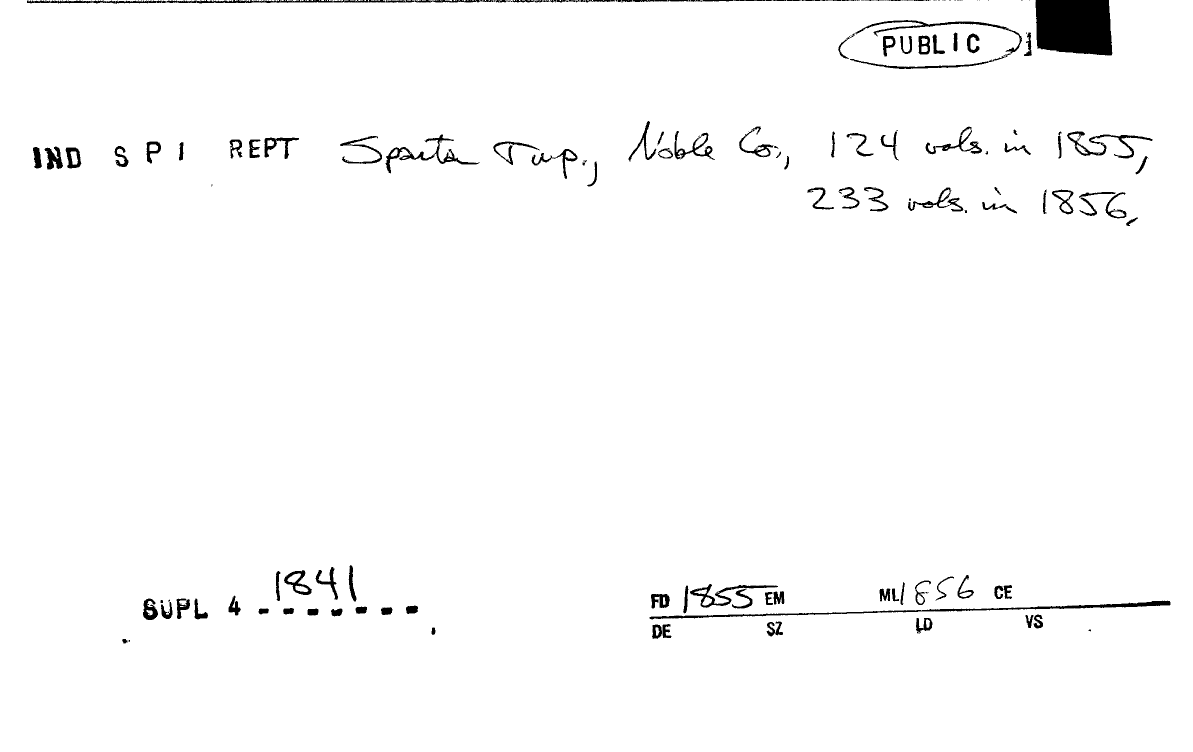 PUBLIC
IND S P I REPT Sparta Twp., Noble Co., 124 vols. in 1855,
233 vols. in 1856,
SUPL 4 1841
FD 1855 EM ML 1856 CE
DE SZ LD VS